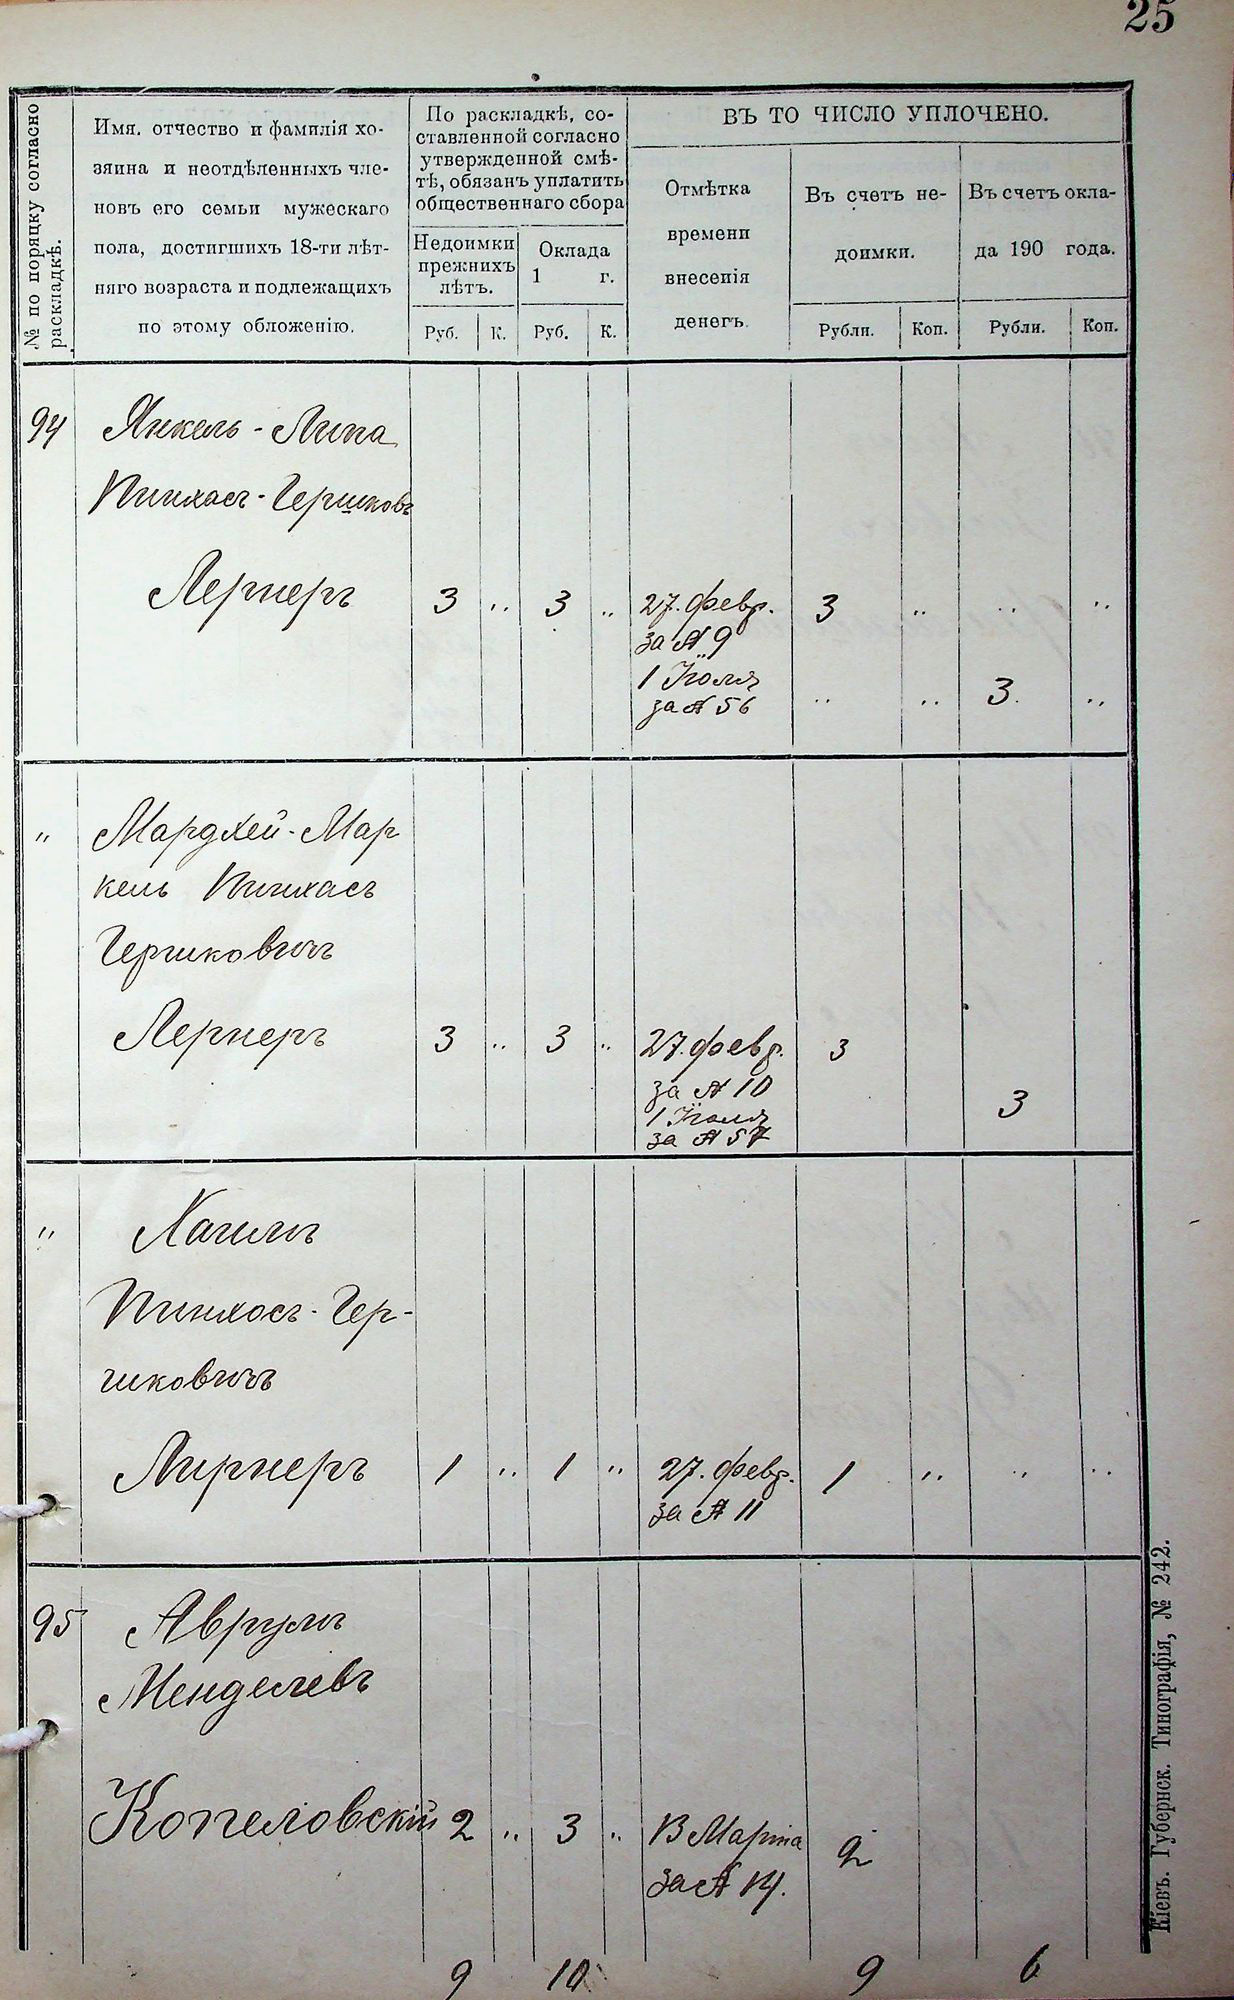 25
№ по поряцку согласно
раскладкѣ.
Имя, отчество и фамилія хо-
зяина и неотдѣленныхъ чле-
новъ его семьи мужескаго
пола, достигшихъ 18-ти лѣт-
няго возраста и подлежащихъ
по этому обложенію.
По раскладкѣ, со-
ставленной согласно
утвержденной смѣ-
тѣ, обязанъ уплатить
общественнаго сбора
Недоимки
прежнихъ
лѣтъ.
Оклада
1 г.
Руб. К. Руб. К.
ВЪ ТО ЧИСЛО УПЛОЧЕНО.
Отмѣтка
времени
внесенія
денегъ.
Въ счетъ не-
доимки.
Въ счетъ окла-
да 190 года.
Рубли. Коп. Рубли. Коп.
94 Янкель-Липа
Пинхасъ-Гершковъ
Лернеръ 3 „ 3 „ 27. февр. 3 „ „ „
за № 9
1 Іюля
за № 56 „ „ 3. „
„ Мардхей-Мар
кель Пинхасъ
Гершковичъ
Лернеръ 3 „ 3 „ 27. февр. 3
за № 10
1 Іюля 3
за № 57
„ Хаимъ
Пинхосъ-Гер-
шковичъ
Лирнеръ 1 „ 1 „ 27. февр. 1 „ „ „
за № 11
95 Аврумъ
Менделевъ
Копеловскій 2 „ 3 „ 13 Марта 2
за № 14.
9 10 9 6
Кіевъ. Губернск. Типографія, № 242.